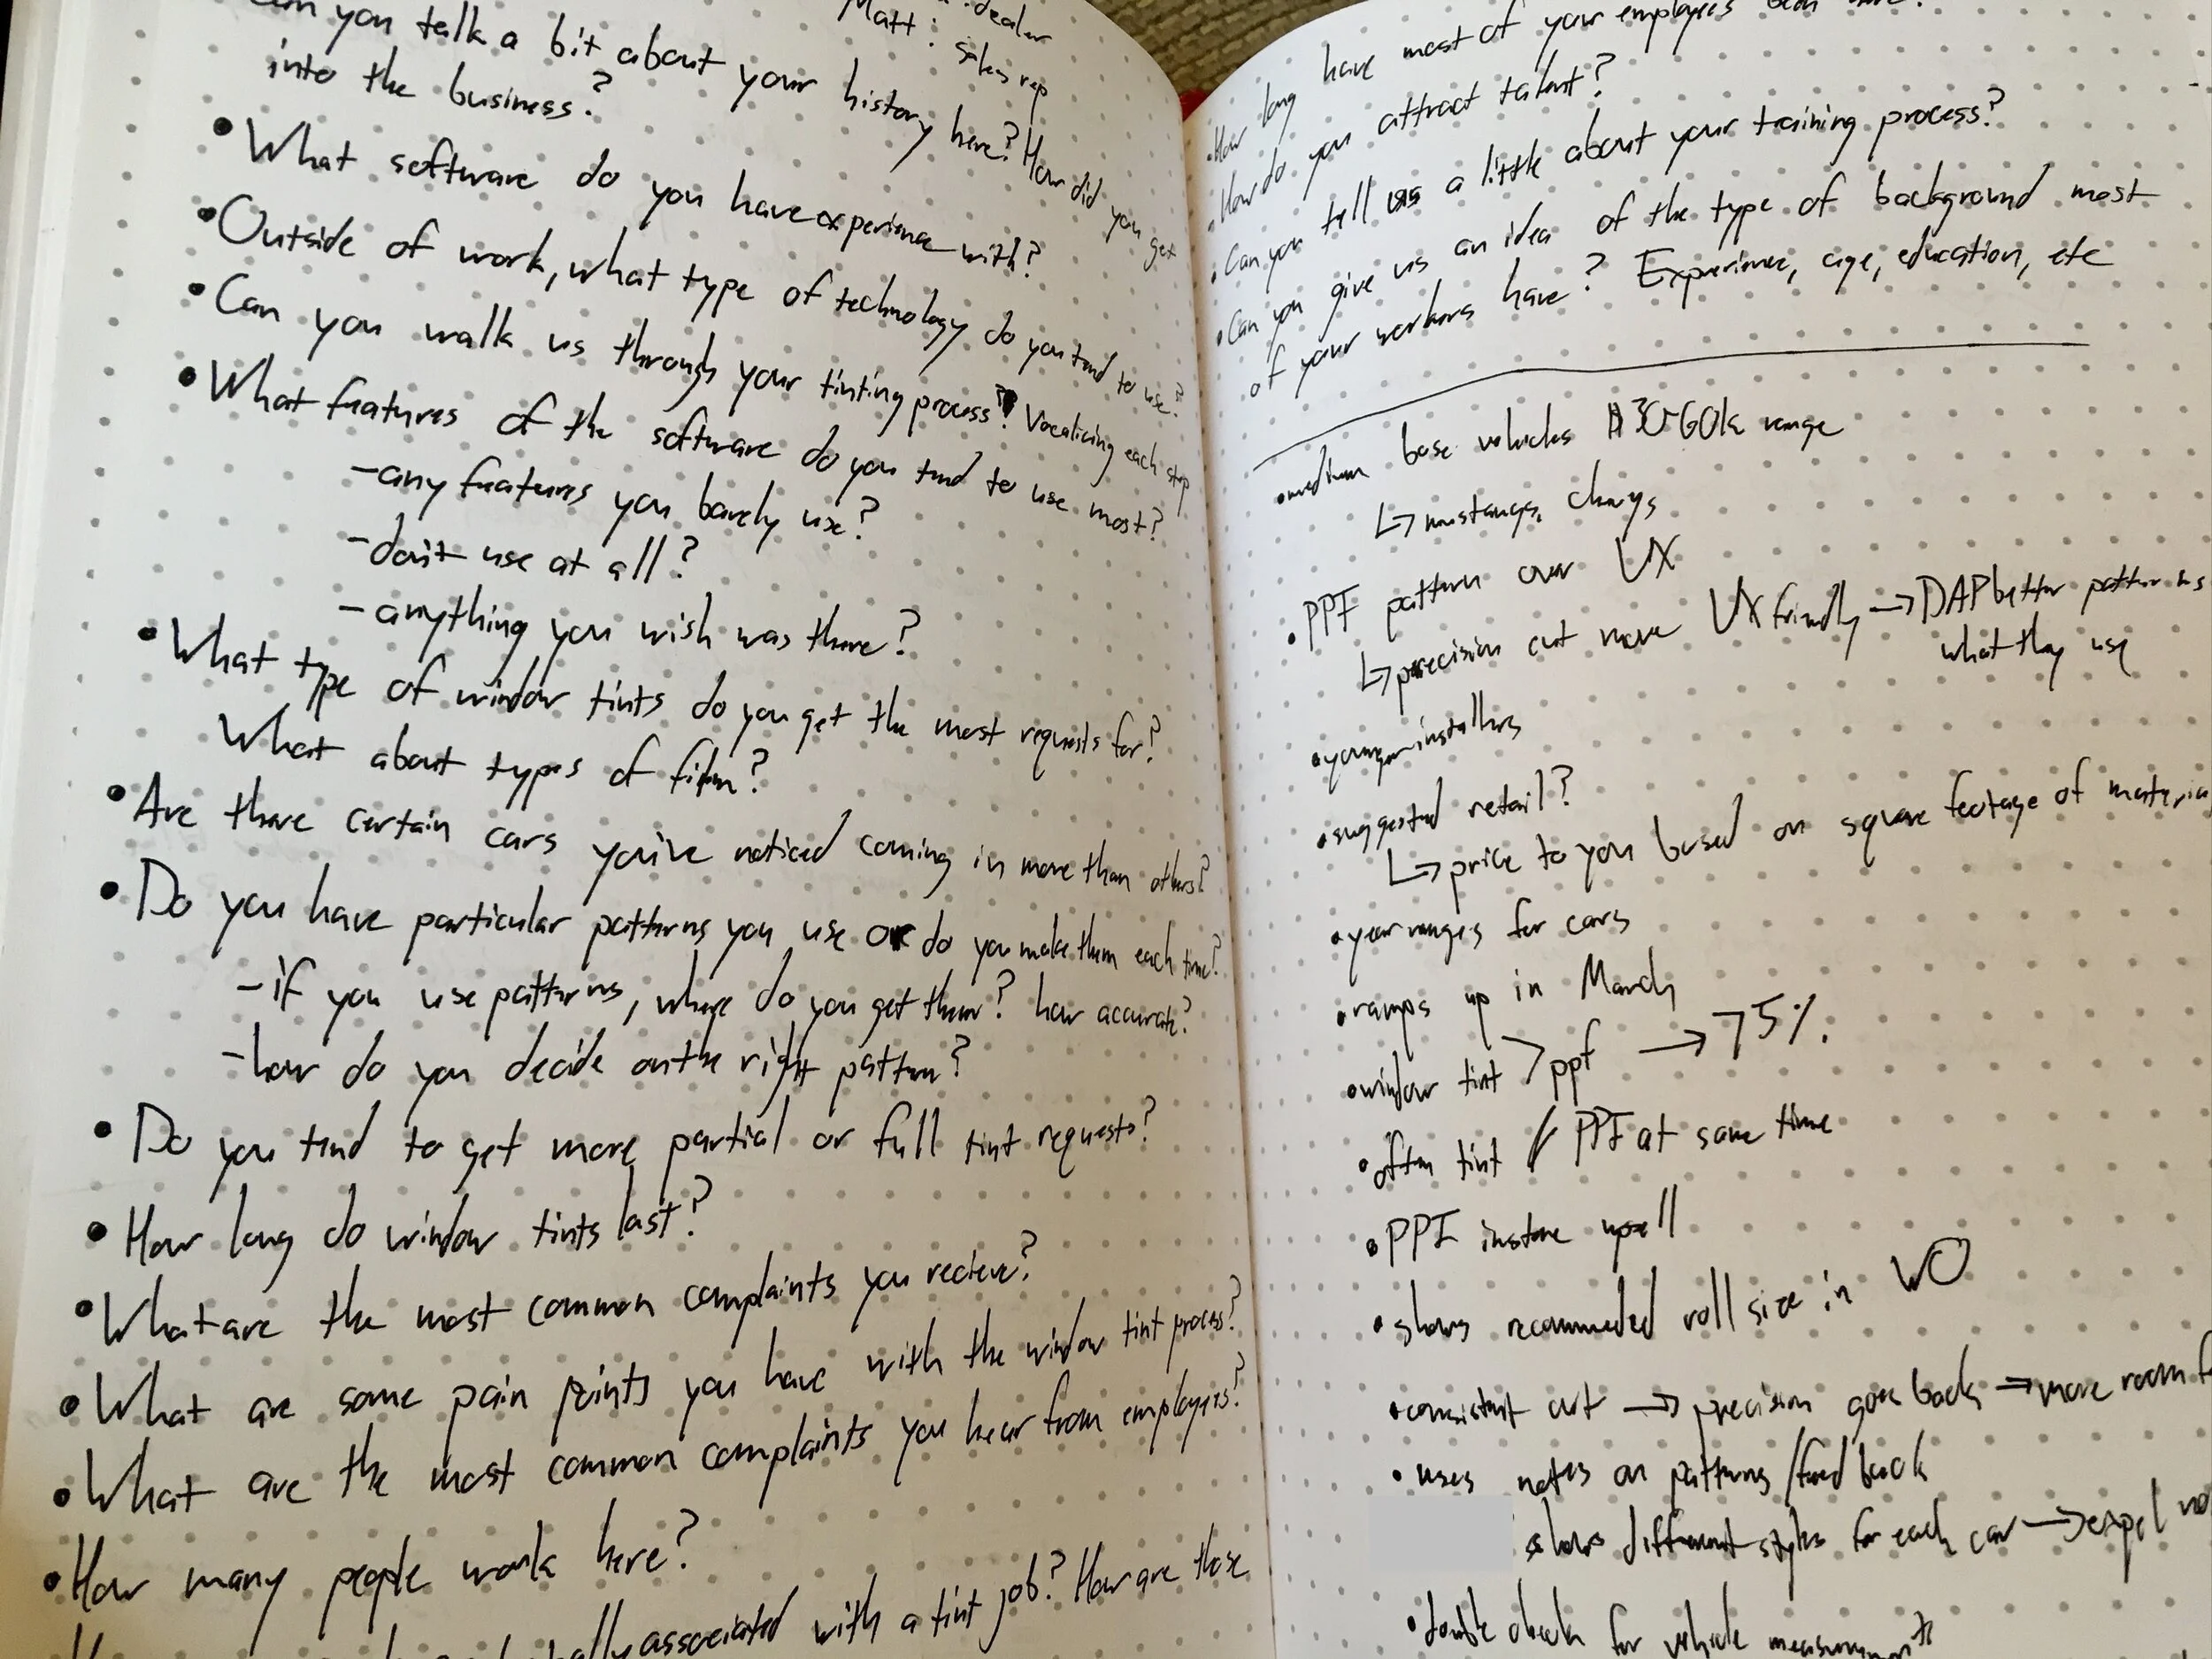 dealer
Matt: sales rep
you talk a bit about your history here? How did you get
into the business?
• What software do you have experience with?
• Outside of work, what type of technology do you tend to use?
• Can you walk us through your tinting process? Vocalizing each step
• What features of the software do you tend to use most?
- any features you barely use?
- don't use at all?
- anything you wish was there?
• What type of window tints do you get the most requests for?
What about types of film?
• Are there certain cars you've noticed coming in more than others?
• Do you have particular patterns you use or do you make them each time?
- if you use patterns, where do you get them? how accurate?
- how do you decide on the right pattern?
• Do you tend to get more partial or full tint requests?
• How long do window tints last?
• What are the most common complaints you recieve?
• What are some pain points you have with the window tint process?
• What are the most common complaints you hear from employees?
• How many people work here?
associated with a tint job? How are those
• How long have most of your employees been
• How do you attract talent?
• Can you tell us a little about your training process?
• Can you give us an idea of the type of background most
of your workers have? Experience, age, education, etc
• medium base vehicles 60k range
↳ mustangs,
• PPF pattern over UX
↳ precision cut more UX friendly → DAP better patterns
what they use
• younger installers
• suggested retail?
↳ price to you based on square footage of
• year ranges for cars
• ramps up in March
• window tint > ppf → 75%
• often tint / PPF at same time
• PPF instore upsell
• shows recommended roll size in WO
• consistent cut → precision goes back → more room
• uses notes on patterns/feedback
shows different styles for each car → expel
• double check for vehicle measurements